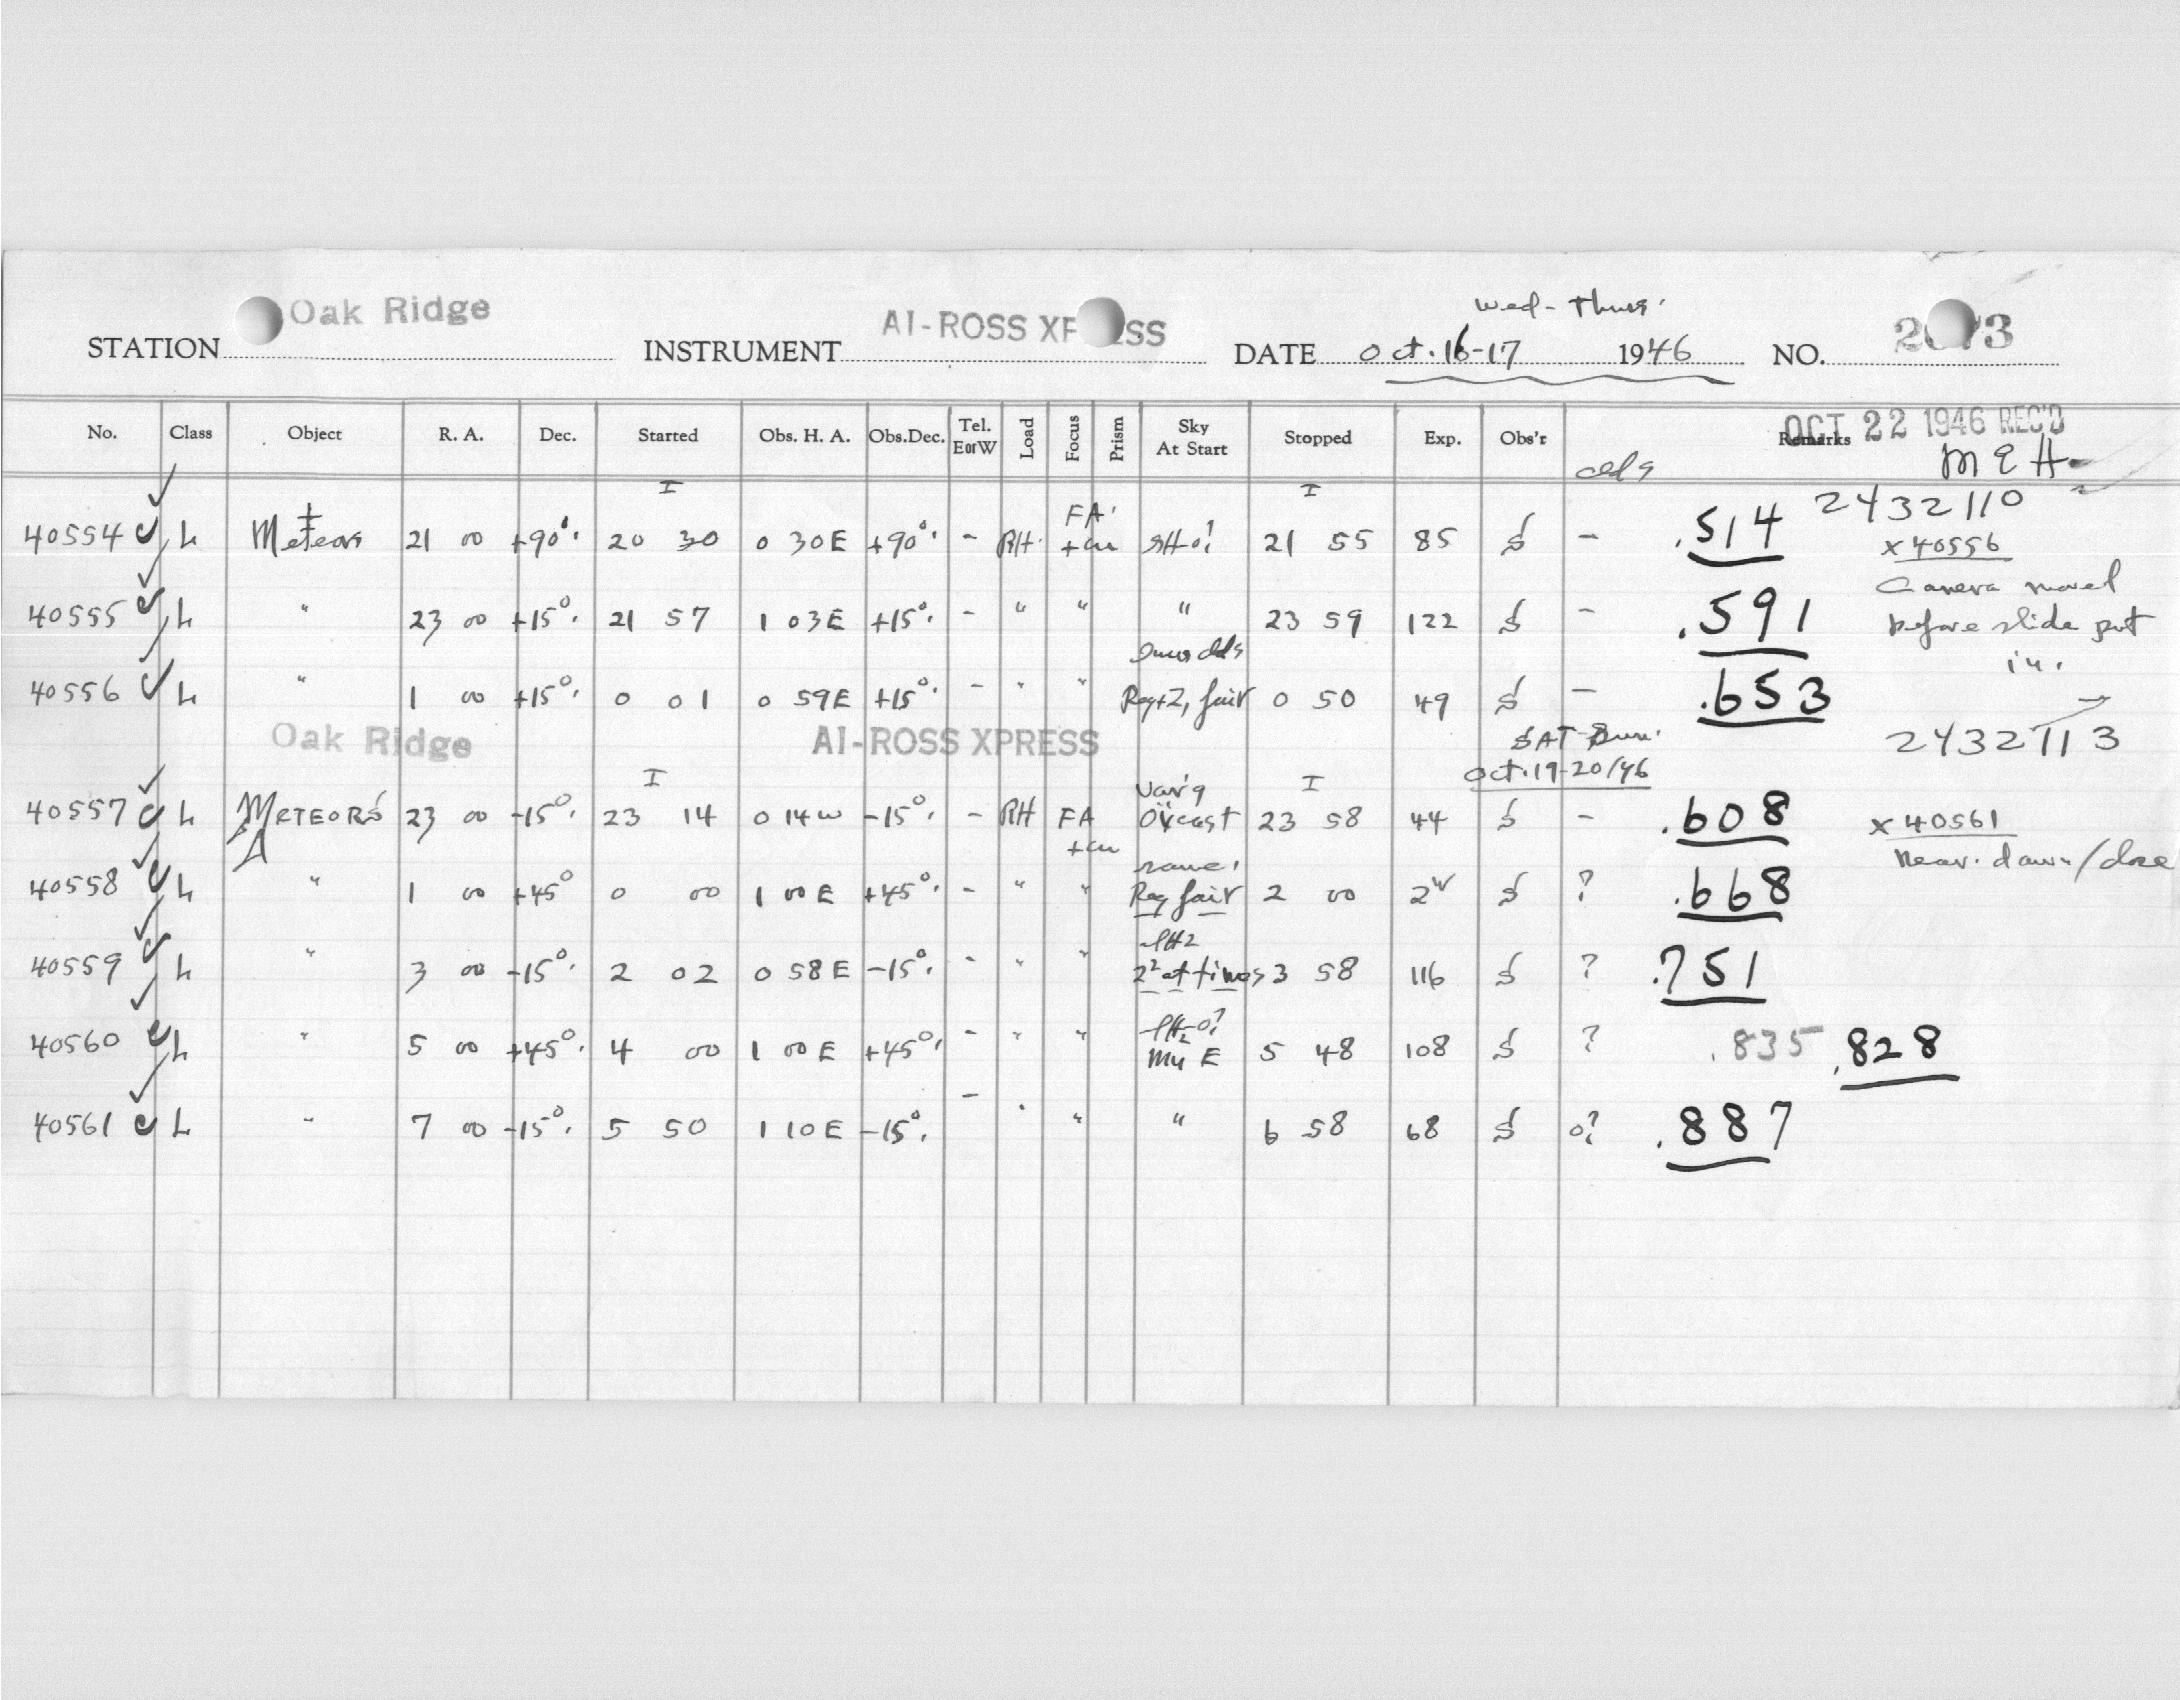 Oak Ridge
Wed - Thurs.
STATION INSTRUMENT AI-ROSS XPRESS DATE Oct. 16-17 1946 NO. 2073
No. Class Object R. A. Dec. Started Obs. H. A. Obs.Dec. Tel. E or W Load Focus Prism Sky At Start Stopped Exp. Obs'r Remarks
OCT 22 1946 REC'D
clds M E H
I I 2432110
40554 L Meteors 21 00 +90° 20 30 0 30E +90° - RH FA + cu SH-0? 21 55 85 S - .514
x 40556
40555 L " 23 00 +15° 21 57 1 03E +15° - " " " 23 59 122 S - .591
Camera moved
before slide put
in.
40556 L " 1 00 +15° 0 01 0 59E +15° - " " clds Reg + 2, fair 0 50 49 S - .653
Oak Ridge AI-ROSS XPRESS SAT-Sun. 2432113
Oct. 19-20/46
I I
40557 L METEORS 23 00 -15° 23 14 0 14W -15° - RH FA + cu Var'g Ovcast 23 58 44 S - .608
x 40561
Near dawn/
40558 L " 1 00 +45° 0 00 1 00E +45° - " " same. Reg fair 2 00 2 S ? .668
40559 L " 3 00 -15° 2 02 0 58E -15° - " " 2² at times 3 58 116 S ? .751
40560 L " 5 00 +45° 4 00 1 00E +45° - " " E 5 48 108 S ? .835 .828
40561 L " 7 00 -15° 5 50 1 10E -15° - " " " 6 58 68 S 0? .887